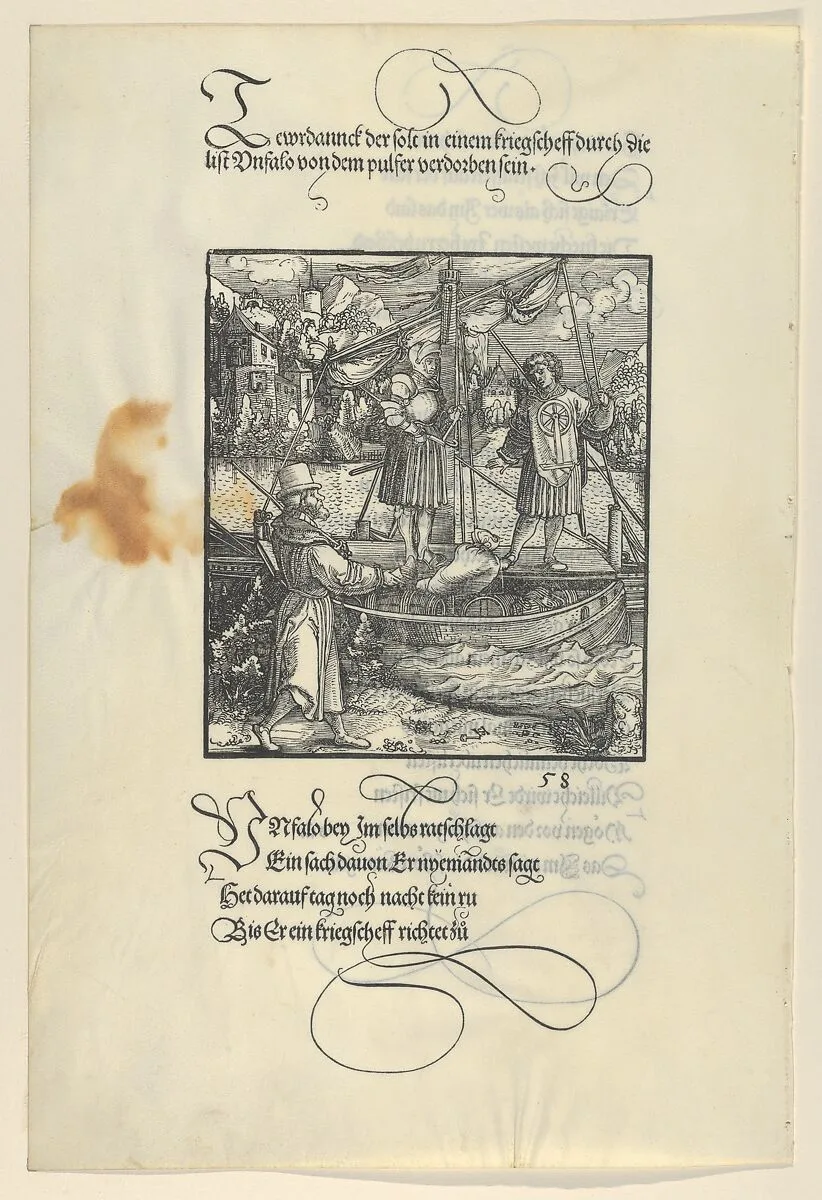 Tewrdannck der solt in einem kriegscheff durch die
list Vnfalo von dem pulfer verdorben sein.
58
VNfalo bey Im selbs ratschlagt
Ein sach dauon Er nyemandts sagt
Het darauf tag noch nacht kein ru
Bis Er ein kriegscheff richtet zů